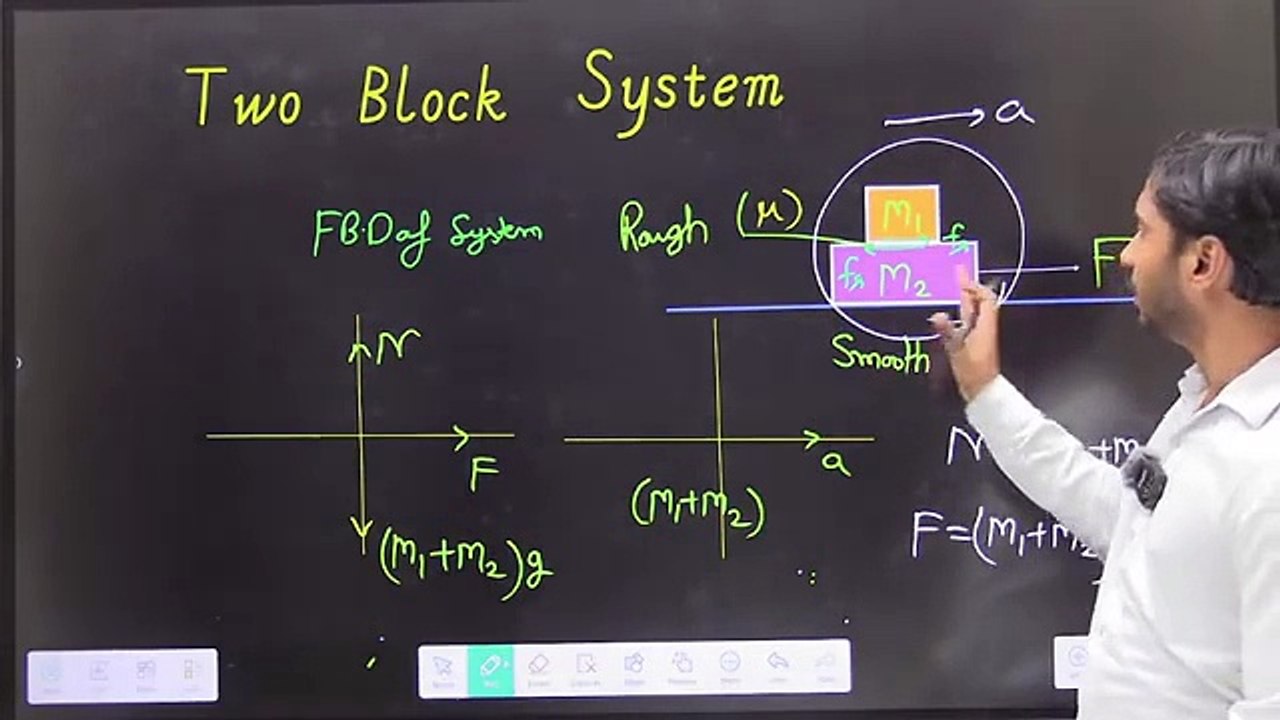 Two Block System
→ a
FB.D of System
Rough (μ)
M₁
f
fr M₂
F
Smooth
N
F
(M₁+M₂)g
a
(M₁+M₂)
N
+m
F=(M₁+M₂